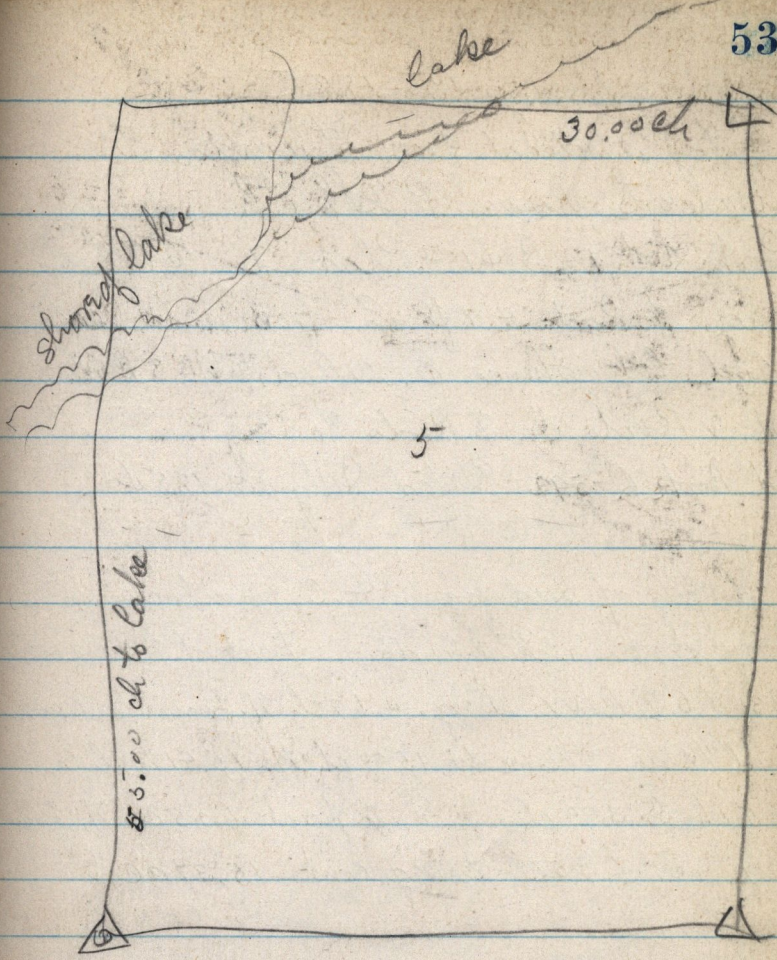 53
lake
30.00 ch
shore of lake
5
55.00 ch to lake